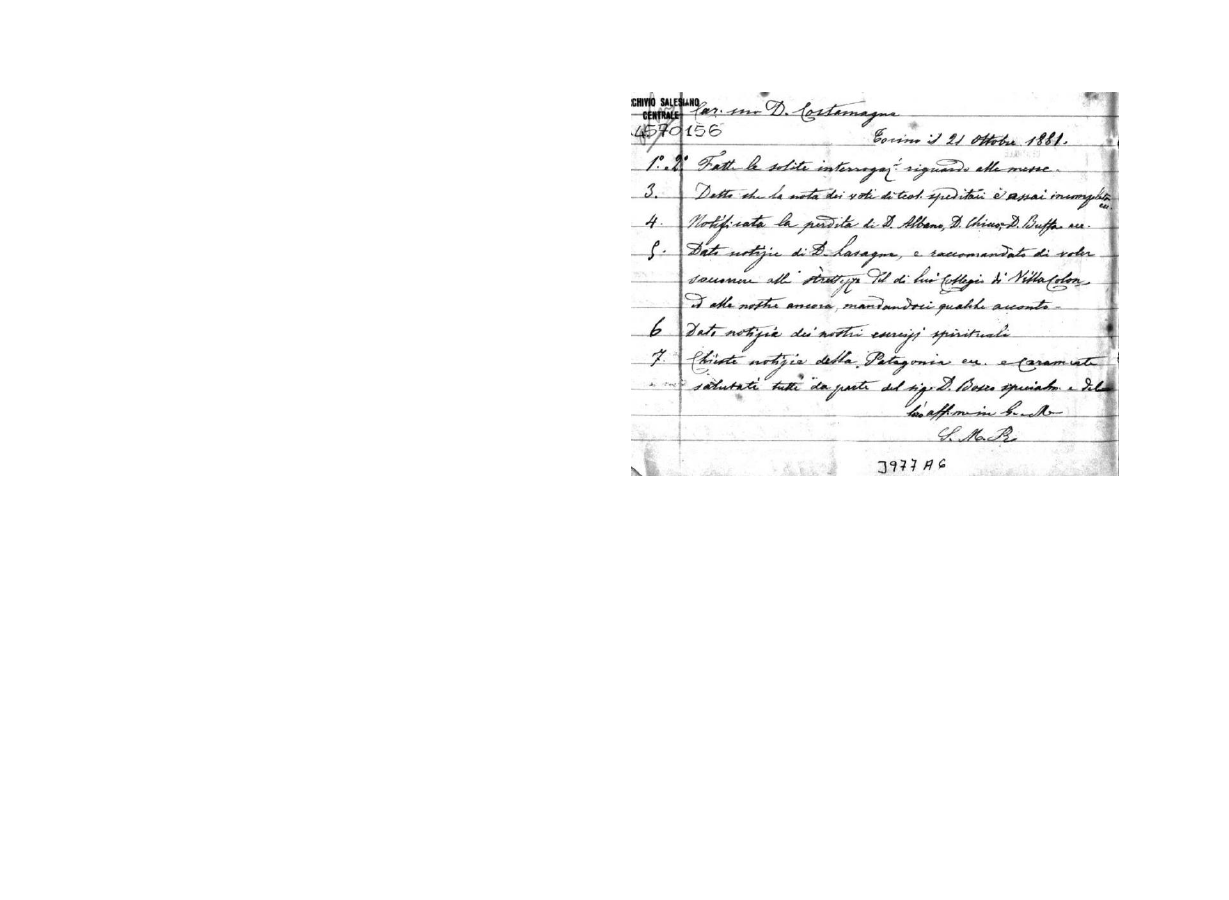 CHIVIO SALESIANO
CENTRALE
4570156
Car.mo D. Costamagna
Torino il 21 Ottobre 1881.
1.° 2.° Fatte le solite interrogaz. riguardo alle messe.
3. Detto che la nota dei voti di teol. speditaci è assai incompleta ecc.
4. Notificata la perdita di D. Albano, D. Chius, D. Buffa ecc.
5. Date notizie di D. Lasagna, e raccomandato di voler
soccorrere alle strettezze del di lui Collegio di Villa Colon
ed alle nostre ancora, mandandoci qualche acconto -
6 Date notizie dei nostri esercizi spirituali
7. Chieste notizie della Patagonia ecc. e caramente
salutati tutti da parte del sig. D. Bosco specialm. e del
aff.mo in G. e M.
S. M. R.
J977 A6